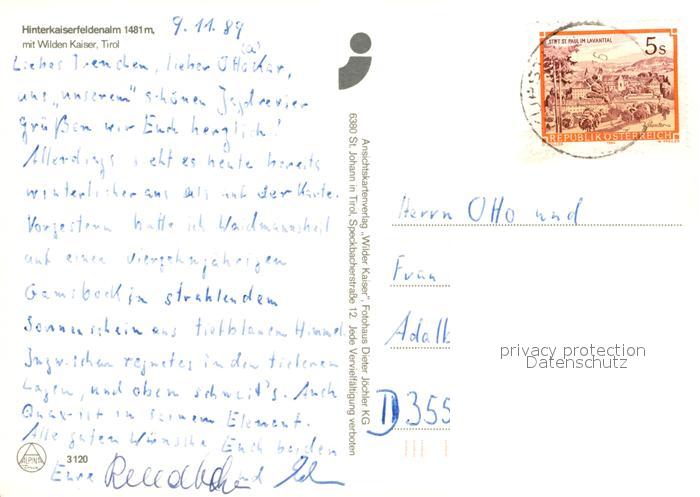 Hinterkaiserfeldenalm 1481 m,
mit Wilden Kaiser, Tirol
9.11.89
Liebes Irenchen, lieber Ottokar,
(a)
aus „unserem" schönen Jagdrevier
grüßen wir Euch herzlich!
Allerdings sieht es heute bereits
winterlicher aus als auf der Karte.
Vorgestern hatte ich Waidmannsheil
auf einen vierzehnjährigen
Gamsbock in strahlendem
Sonnenschein aus tiefblauem Himmel
Inzwischen regnet es in den tieferen
Lagen, und oben schneit's. Auch
ist in seinem Element.
Alle guten Wünsche Euch beiden
Eure
und
ALPINA
3120
Ansichtskartenverlag „Wilder Kaiser", Fotohaus Dieter Jöchler KG
6380 St. Johann in Tirol, Speckbacherstraße 12. Jede Vervielfältigung verboten
STIFT ST. PAUL IM LAVANTTAL
5 s
REPUBLIK ÖSTERREICH
Herrn Otto und
Frau
Adalb
D 355
privacy protection
Datenschutz